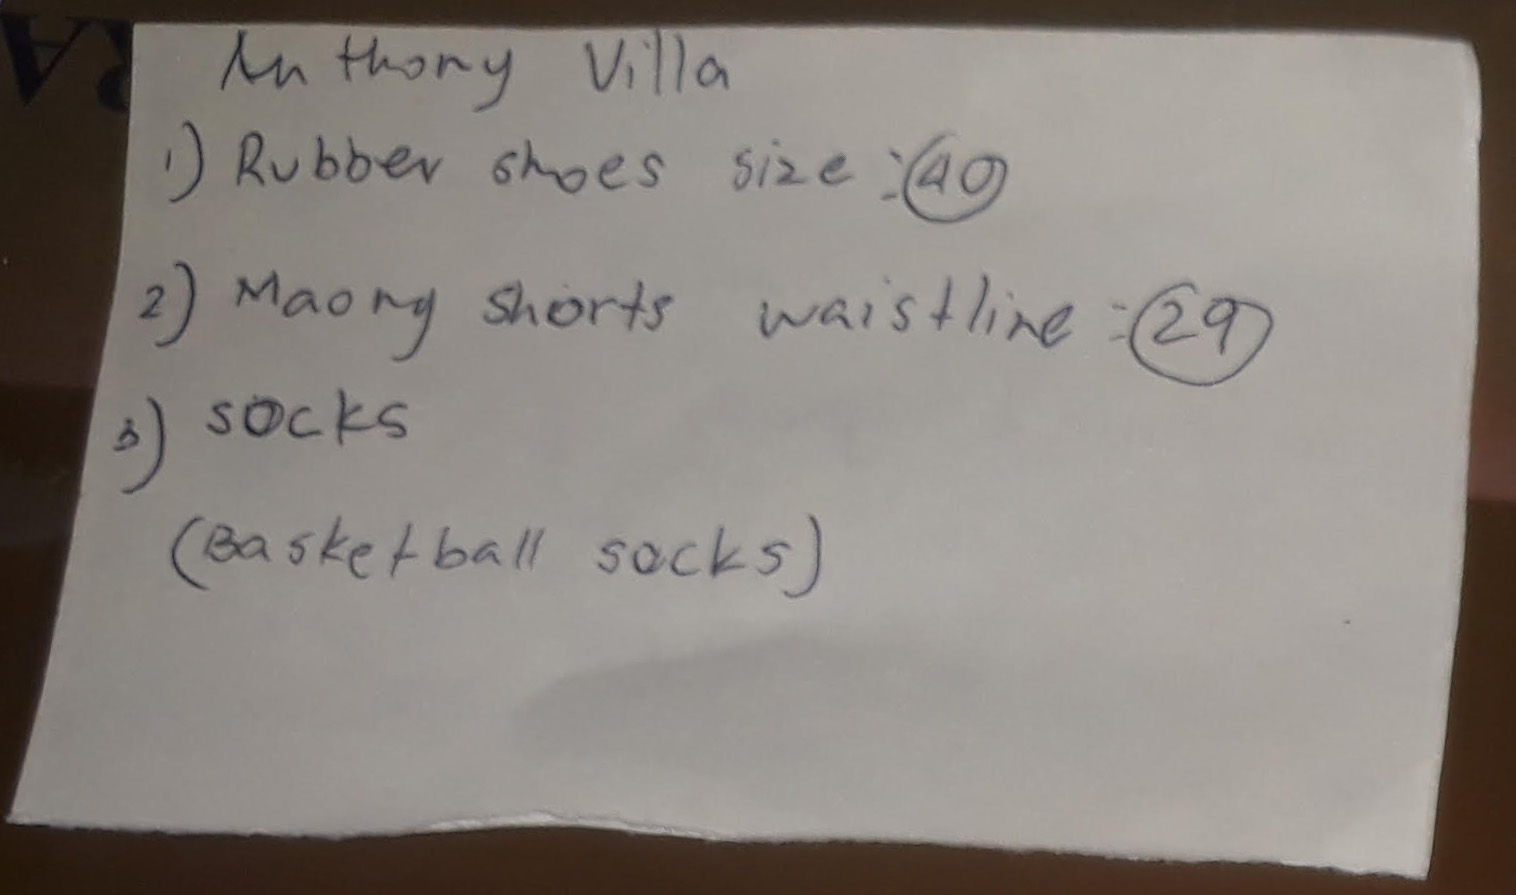 Anthony Villa
1) Rubber shoes size : 40
2) Maong shorts waistline : 29
3) socks
(Basketball socks)
RA